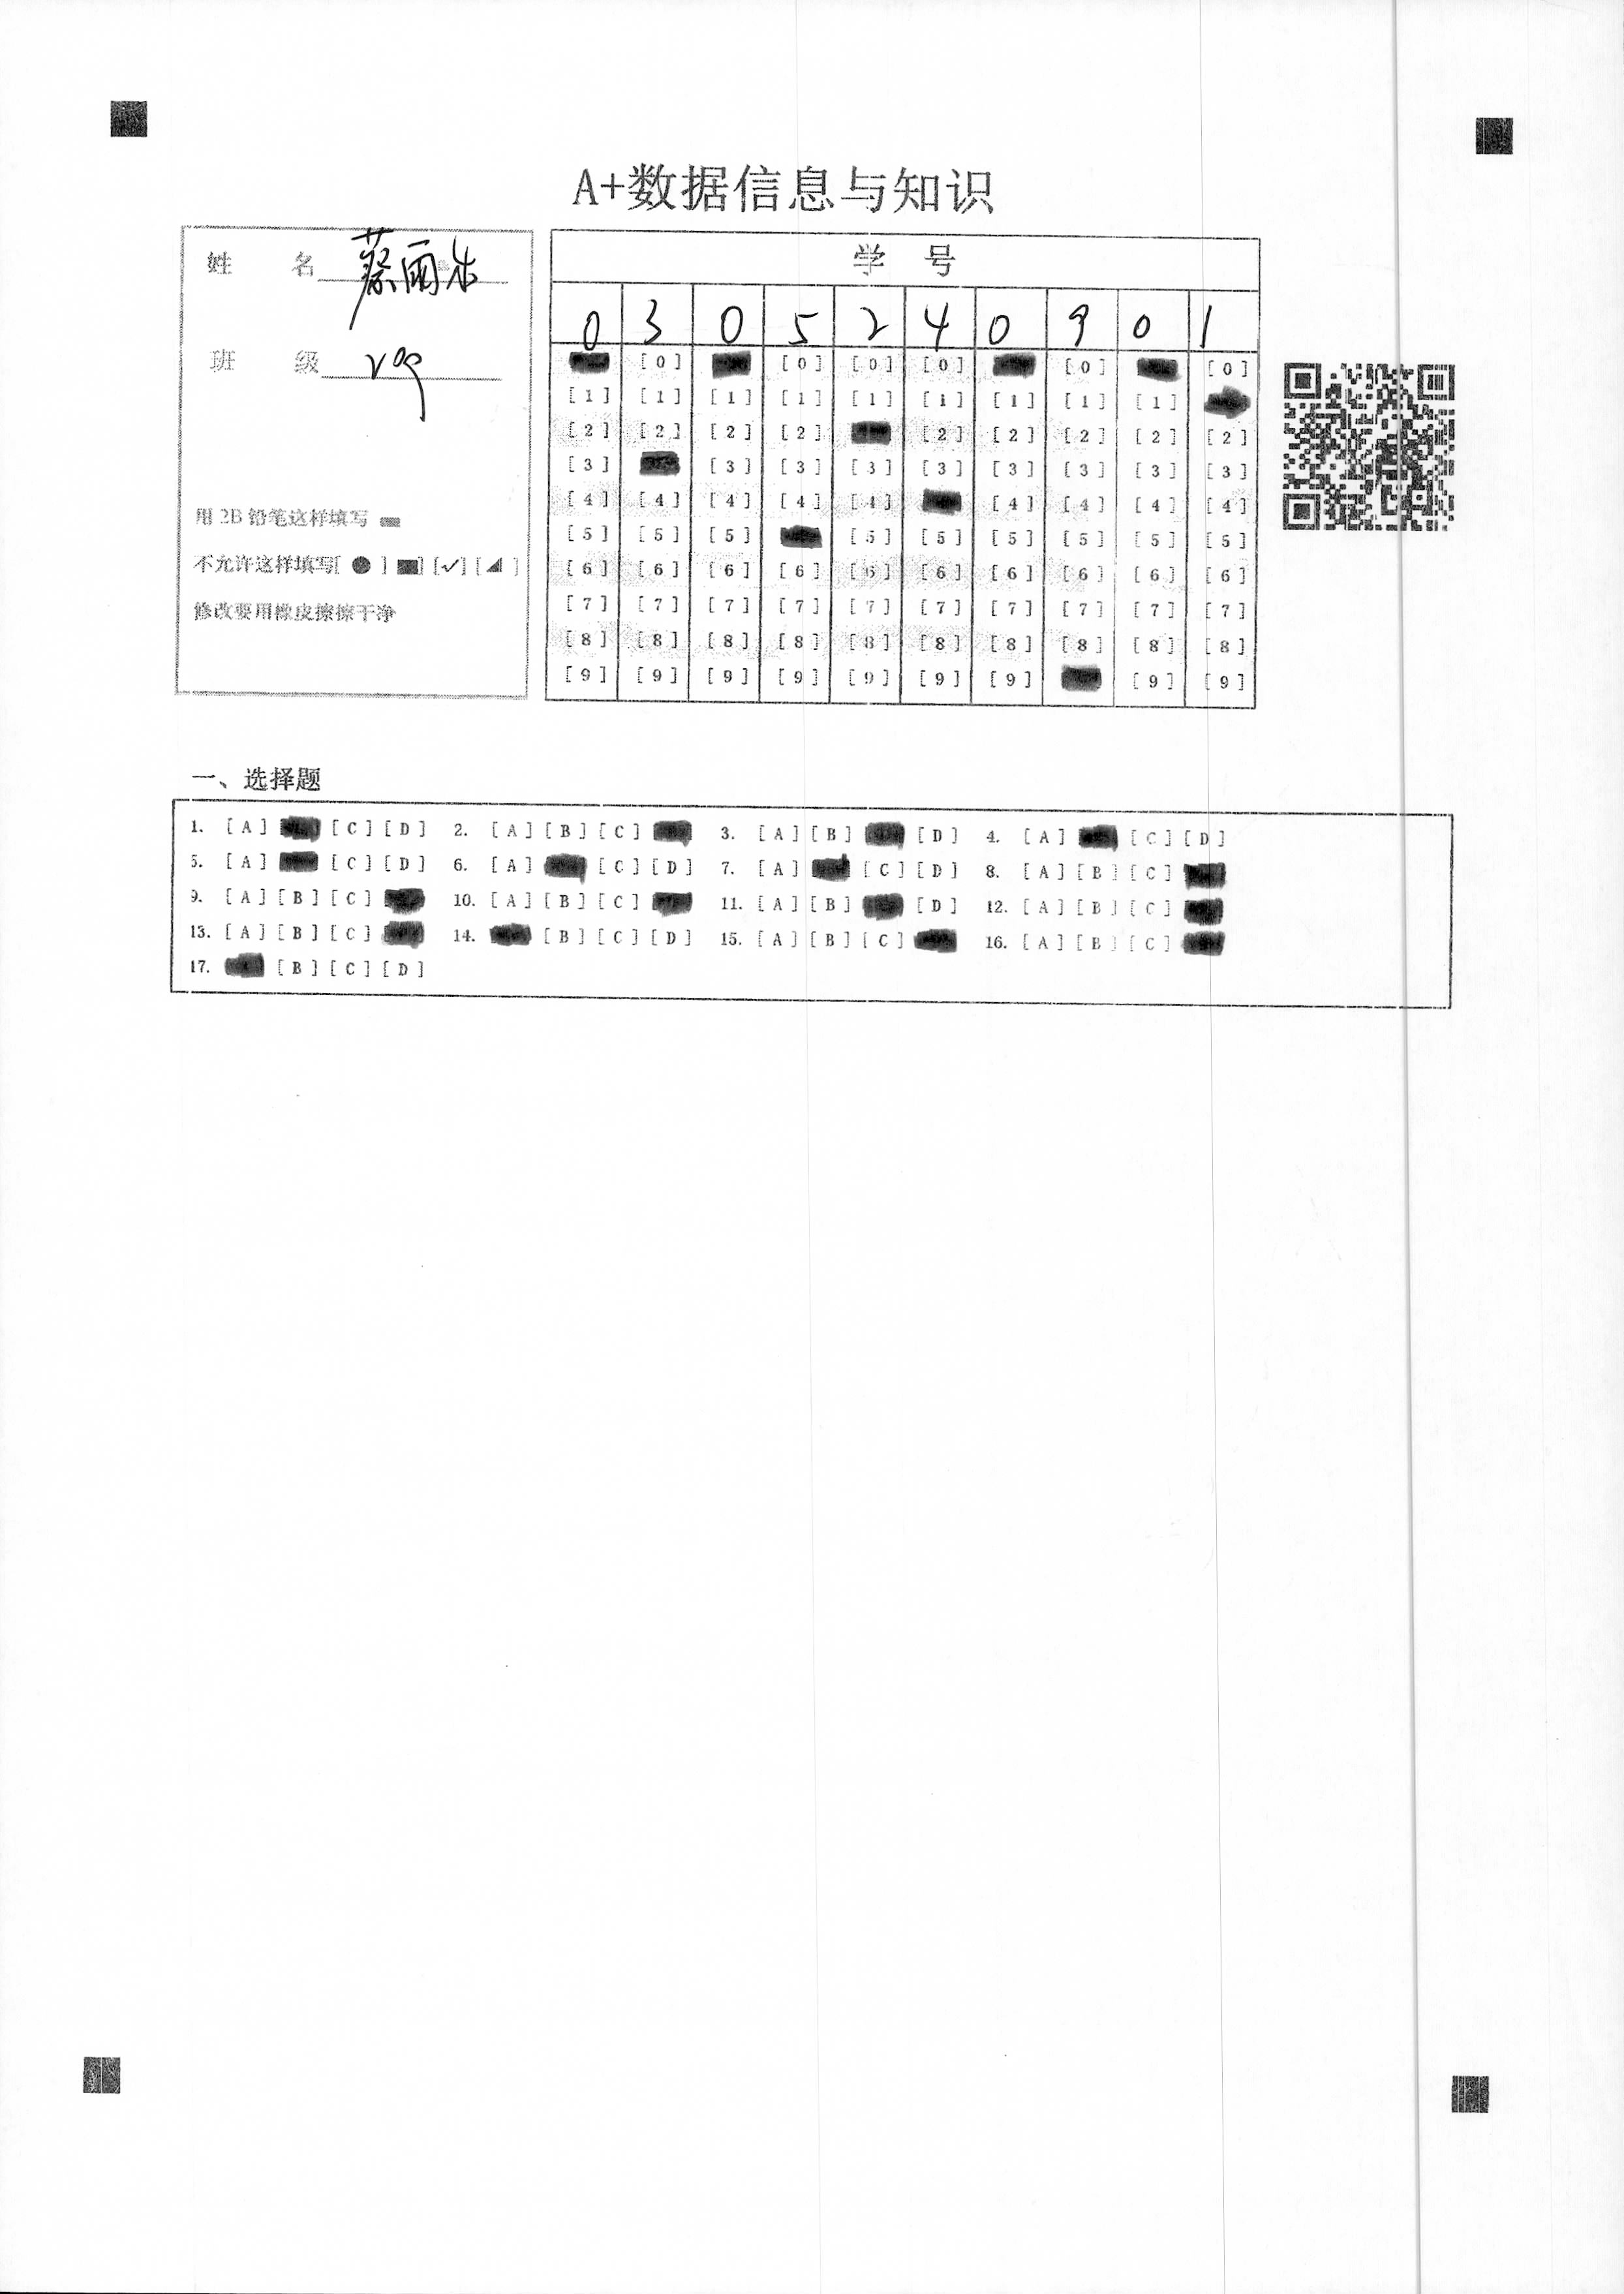 A+数据信息与知识
姓 名 蔡雨
班 级 209
用 2B 铅笔这样填写
不允许这样填写[ ● ] [■] [✓] [◢ ]
修改要用橡皮擦擦干净
学 号
0 3 0 5 2 4 0 9 0 1
[0] [0] [0] [0] [0] [0]
[1] [1] [1] [1] [1] [1] [1] [1] [1]
[2] [2] [2] [2] [2] [2] [2] [2] [2]
[3] [3] [3] [3] [3] [3] [3] [3] [3]
[4] [4] [4] [4] [4] [4] [4] [4] [4]
[5] [5] [5] [5] [5] [5] [5] [5] [5]
[6] [6] [6] [6] [6] [6] [6] [6] [6] [6]
[7] [7] [7] [7] [7] [7] [7] [7] [7] [7]
[8] [8] [8] [8] [8] [8] [8] [8] [8] [8]
[9] [9] [9] [9] [9] [9] [9] [9] [9]
一、选择题
1. [A] [C] [D] 2. [A] [B] [C] 3. [A] [B] [D] 4. [A] [C] [D]
5. [A] [C] [D] 6. [A] [C] [D] 7. [A] [C] [D] 8. [A] [B] [C]
9. [A] [B] [C] 10. [A] [B] [C] 11. [A] [B] [D] 12. [A] [B] [C]
13. [A] [B] [C] 14. [B] [C] [D] 15. [A] [B] [C] 16. [A] [B] [C]
17. [B] [C] [D]